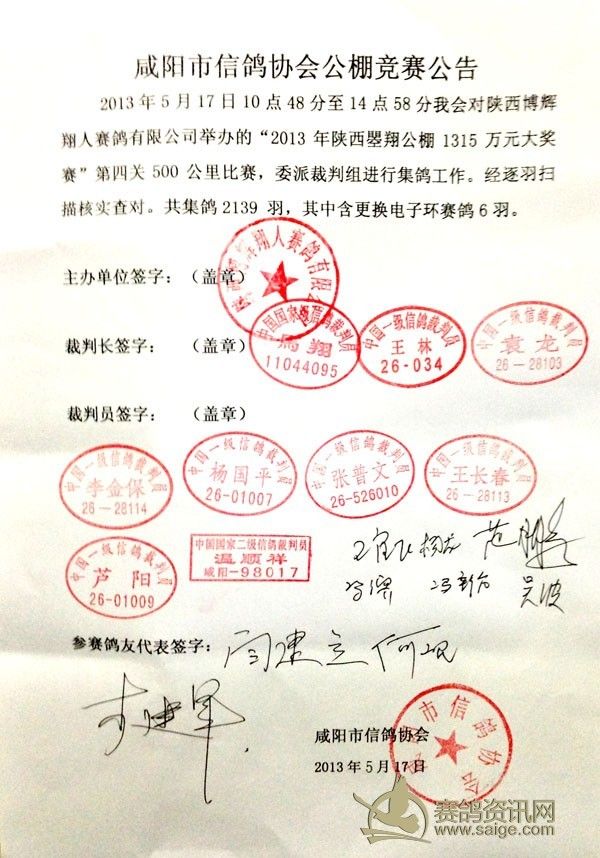 咸阳市信鸽协会公棚竞赛公告
2013年5月17日10点48分至14点58分我会对陕西博辉
翔人赛鸽有限公司举办的“2013年陕西曌翔公棚1315万元大奖
赛”第四关500公里比赛，委派裁判组进行集鸽工作。经逐羽扫
描核实查对。共集鸽2139羽，其中含更换电子环赛鸽6羽。
主办单位签字：（盖章）
翔人赛鸽有限公
裁判长签字：（盖章）
中国国家级信鸽裁判员
翔
11044095
中国一级信鸽裁判员
王林
26-034
中国一级信鸽裁判员
袁龙
26-28103
裁判员签字：（盖章）
中国一级信鸽裁判员
李金保
26-28114
中国一级信鸽裁判员
杨国平
26-01007
中国一级信鸽裁判员
张普文
26-526010
中国一级信鸽裁判员
王长春
26-28113
中国一级信鸽裁判员
芦阳
26-01009
中国国家二级信鸽裁判员
温顺祥
咸阳-98017
吴波
参赛鸽友代表签字：
闫建立
咸阳市信鸽协会
2013年5月17日
市信鸽协会
赛鸽资讯网
www.saige.com